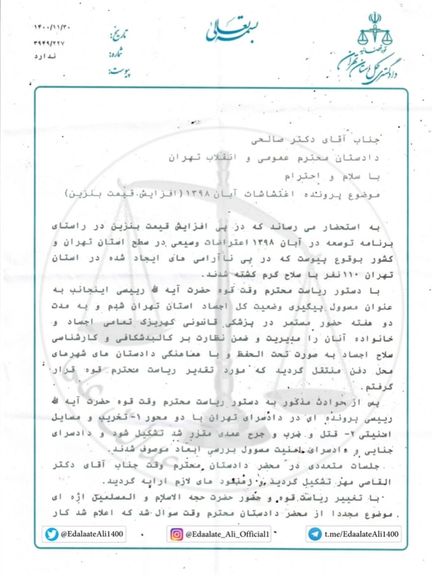 بسمه تعالی
تاریخ: ۱۴۰۰/۱۱/۳۰
شماره: ۳۹۴۹/۲۲۷
پیوست: ندارد
قوه قضائیه
دادگستری کل استان تهران
جناب آقای دکتر صالحی
دادستان محترم عمومی و انقلاب تهران
با سلام و احترام
موضوع پرونده اغتشاشات آبان ۱۳۹۸(افزایش قیمت بنزین)
به استحضار می رساند که در پی افزایش قیمت بنزین در راستای
برنامه توسعه در آبان ۱۳۹۸ اعتراضات وسیعی در سطح استان تهران و
کشور بوقوع پیوست که در پی ناآرامی های ایجاد شده در استان
تهران ۱۱۰نفر با سلاح گرم کشته شدند.
با دستور ریاست محترم وقت قوه حضرت آیه الله رییسی اینجانب به
عنوان مسوول پیگیری وضعیت کل اجساد استان تهران شدم و به مدت
دو هفته حضور مستمر در پزشکی قانونی کهریزک تمامی اجساد و
خانواده آنان را مدیریت و ضمن نظارت بر کالبدشکافی و کارشناسی
سلاح اجساد به صورت تحت الحفظ و با هماهنگی دادستان های شهرهای
محل دفن منتقل گردید که مورد تقدیر ریاست محترم قوه قرار
گرفتم.
پس از حوادث مذکور به دستور ریاست محترم وقت قوه حضرت آیه الله
رییسی پرونده ای در دادسرای تهران با دو محور ۱-تخریب و مسایل
امنیتی ۲- قتل و ضرب و جرح عمدی مقرر شد تشکیل شود و دادسرای
جنایی و دادسرای امنیت مسوول بررسی ابعاد موصوف شدند.
جلسات متعددی در محضر دادستان محترم وقت جناب آقای دکتر
القاصی مهر تشکیل گردید و رهنمود های لازم ارایه گردید.
با تغییر ریاست قوه و حضور حضرت حجه الاسلام و المسلمین اژه ای
موضوع مجددا از محضر دادستان محترم وقت سوال شد که اعلام شد کار
@EdaalateAli1400
@Edaalate_Ali_Official1
t.me/EdaalateAli1400